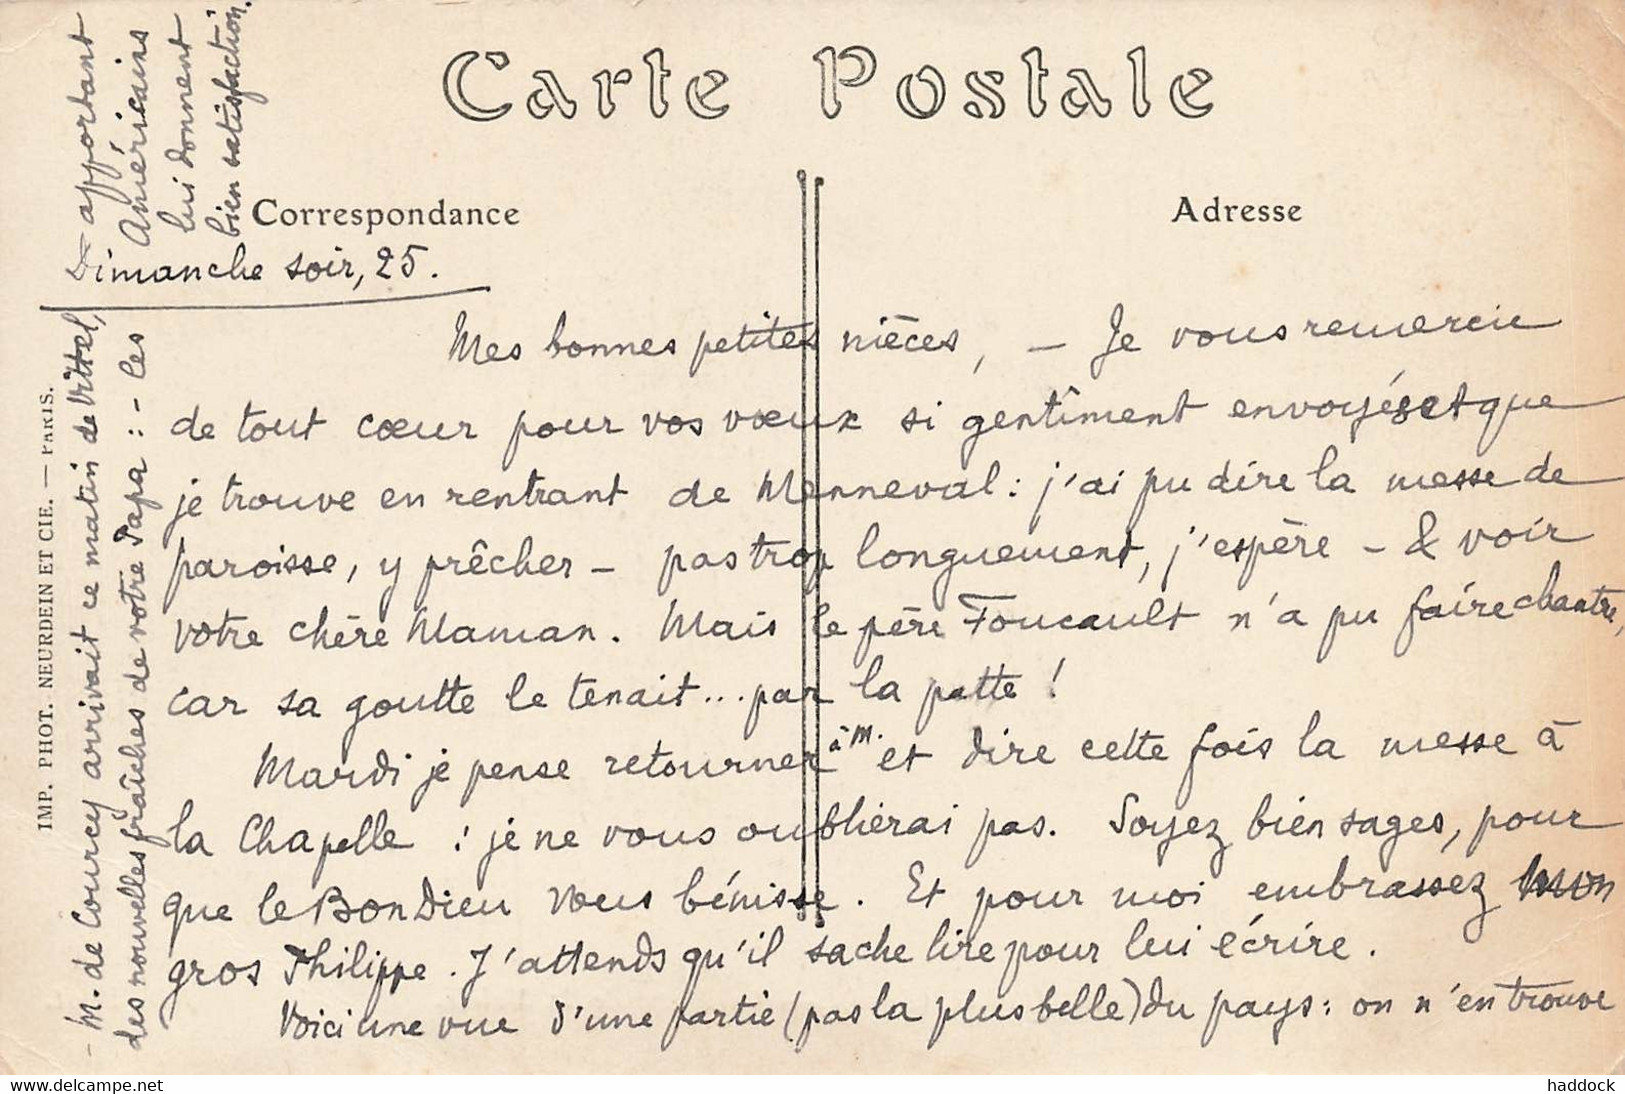 Carte Postale
Correspondance
Adresse
Dimanche soir, 25.
Mes bonnes petites nièces, — Je vous remercie
de tout cœur pour vos vœux si gentîment envoyés et que
je trouve en rentrant de Menneval : j'ai pu dire la messe de
paroisse, y prêcher — pas trop longuement, j'espère — & voir
votre chère Maman. Mais le père Foucault n'a pu faire chantre,
car sa goutte le tenait... par la patte !
Mardi je pense retourner à M. et dire cette fois la messe à
la Chapelle : je ne vous oublierai pas. Soyez bien sages, pour
que le Bon Dieu vous bénisse. Et pour moi embrassez mon
gros Philippe. J'attends qu'il sache lire pour lui écrire.
Voici une vue d'une partie (pas la plus belle) du pays : on n'en trouve
— M. de Courcy arrivait ce matin de Vittel,
apportant
des nouvelles fraîches de votre Papa : — les
Américains
lui donnent
bien satisfaction.
IMP. PHOT. NEURDEIN ET CIE. — PARIS.
delcampe.net
haddock